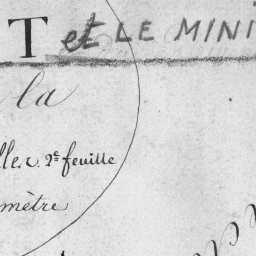 T et LE MINI
la
lle. 2e feuille
mètre